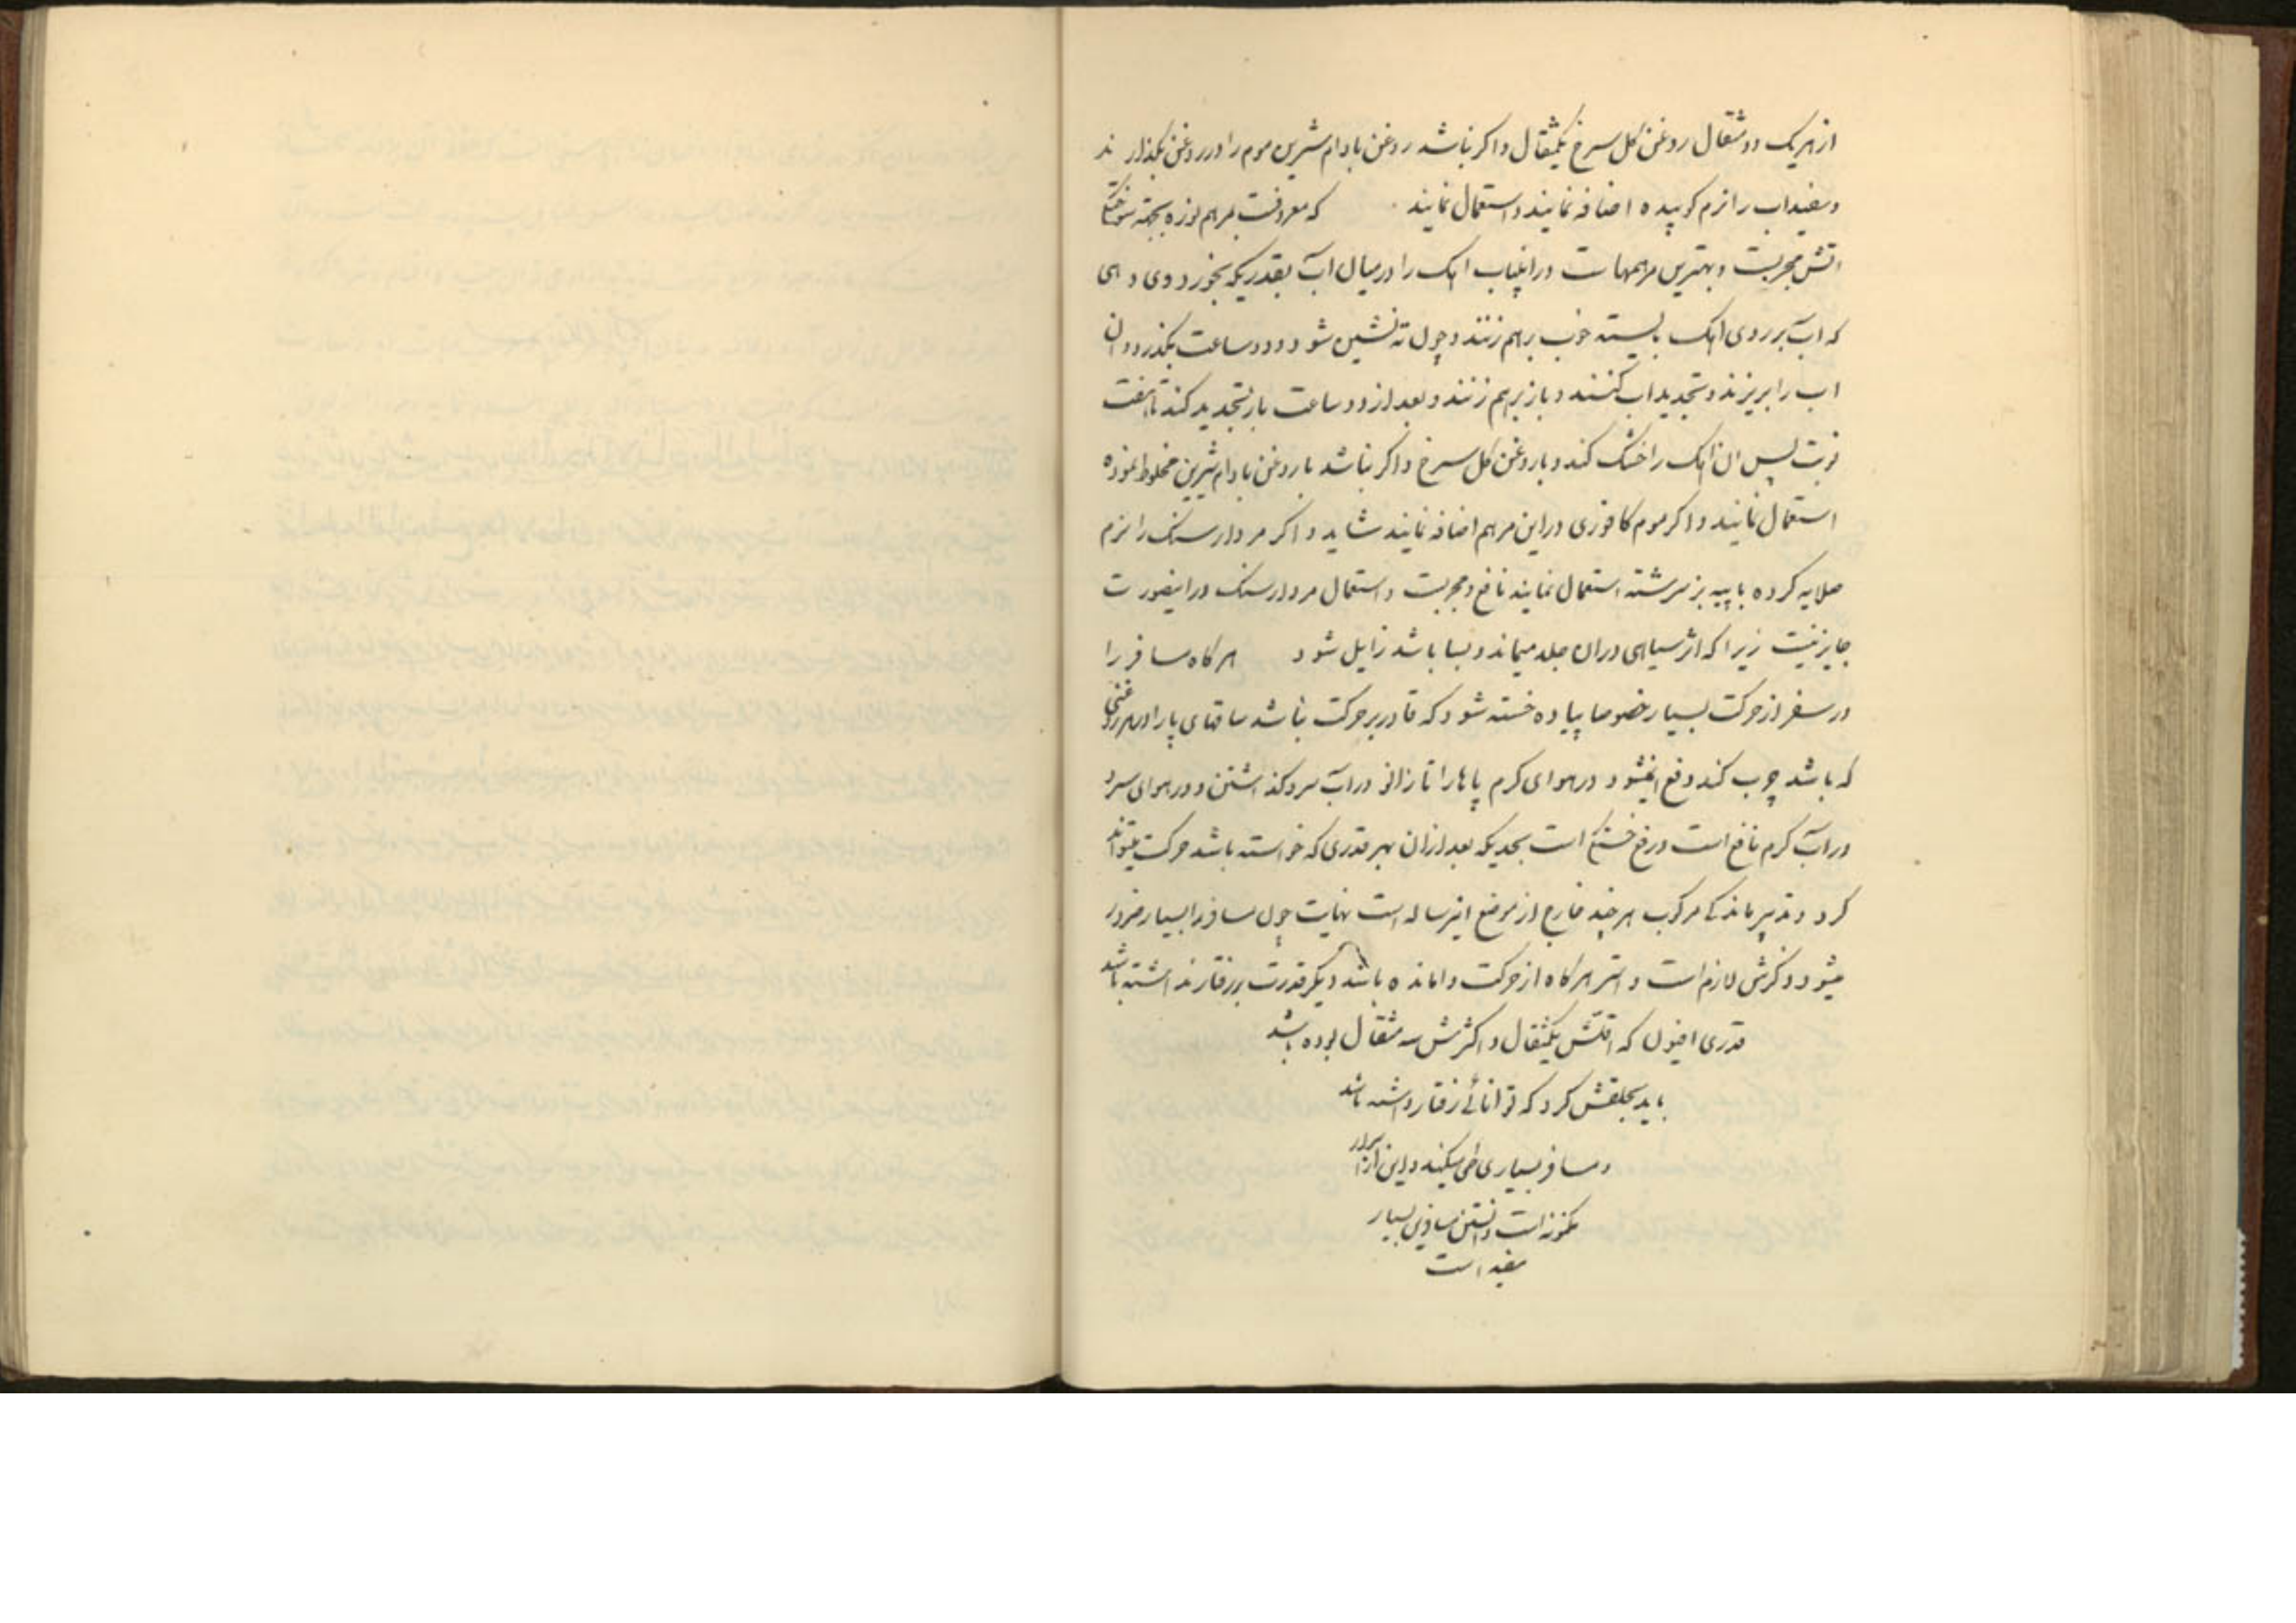 از هر یک دو مثقال روغن کل سرخ یکمثقال و اکر نباشد روغن بادام شیرین موم را در روغن بکذارند
و سفیداب را نرم کوبیده اضافه نمایند و استعمال نمایند که معروفست بمرهم نوره بجهته سوختکی
اتش مجربست و بهترین مرهمهاست در اینباب اهک را در میان اب بقدریکه بخورد وی دهی
که اب بر روی اهک بایسته خوب برهم زنند و چون ته نشین شود و دو ساعت بکذرد ان
اب را بریزند و تجدید اب کنند و باز برهم زنند و بعد از دو ساعت باز تجدید کند تا هفت
نوبت پس ان اهک را خشک کند و با روغن کل سرخ و اکر نباشد با روغن بادام شیرین مخلوط نموده
استعمال نمایند و اکر موم کافوری در این مرهم اضافه نمایند شاید و اکر مردارسنک را نرم
صلایه کرده با پیه بز سرشته استعمال نمایند نافع و مجربست و استعمال مردارسنک در اینصورت
جایز نیست زیرا که اثر سیاهی در ان جلد میماند و بسا باشد زایل شود هرکاه مسافر را
در سفر از حرکت بسیار خصوصا پیاده خسته شود که قادر بر حرکت نباشد ساقهای پا را بهر روغنی
که باشد چرب کند دفع میشود در هوای کرم پاها را تا زانو در اب سرد کذاشتن و در هوای سرد
در اب کرم نافع است و رفع خستکی است بحدیکه بعد از ان بهر قدری که خواسته باشد حرکت میتواند
کرد و تدبیر ماندکی مرکوب هر چند خارج از موضع اینرساله است نهایت چون مسافر را بسیار ضرور
میشود ذکرش لازم است و استر هرکاه از حرکت وامانده باشد دیکر قدرت بر رفتار نداشته باشد
قدری افیون که اقلش یکمثقال و اکثرش سه مثقال بوده باشد
باید بحلقش کرد که توانائی رفتار داشته باشد
و مسافر بسیاری طی میکند و این از اسرار
مکنونه است و دانستن مسافرین بسیار
مفید است